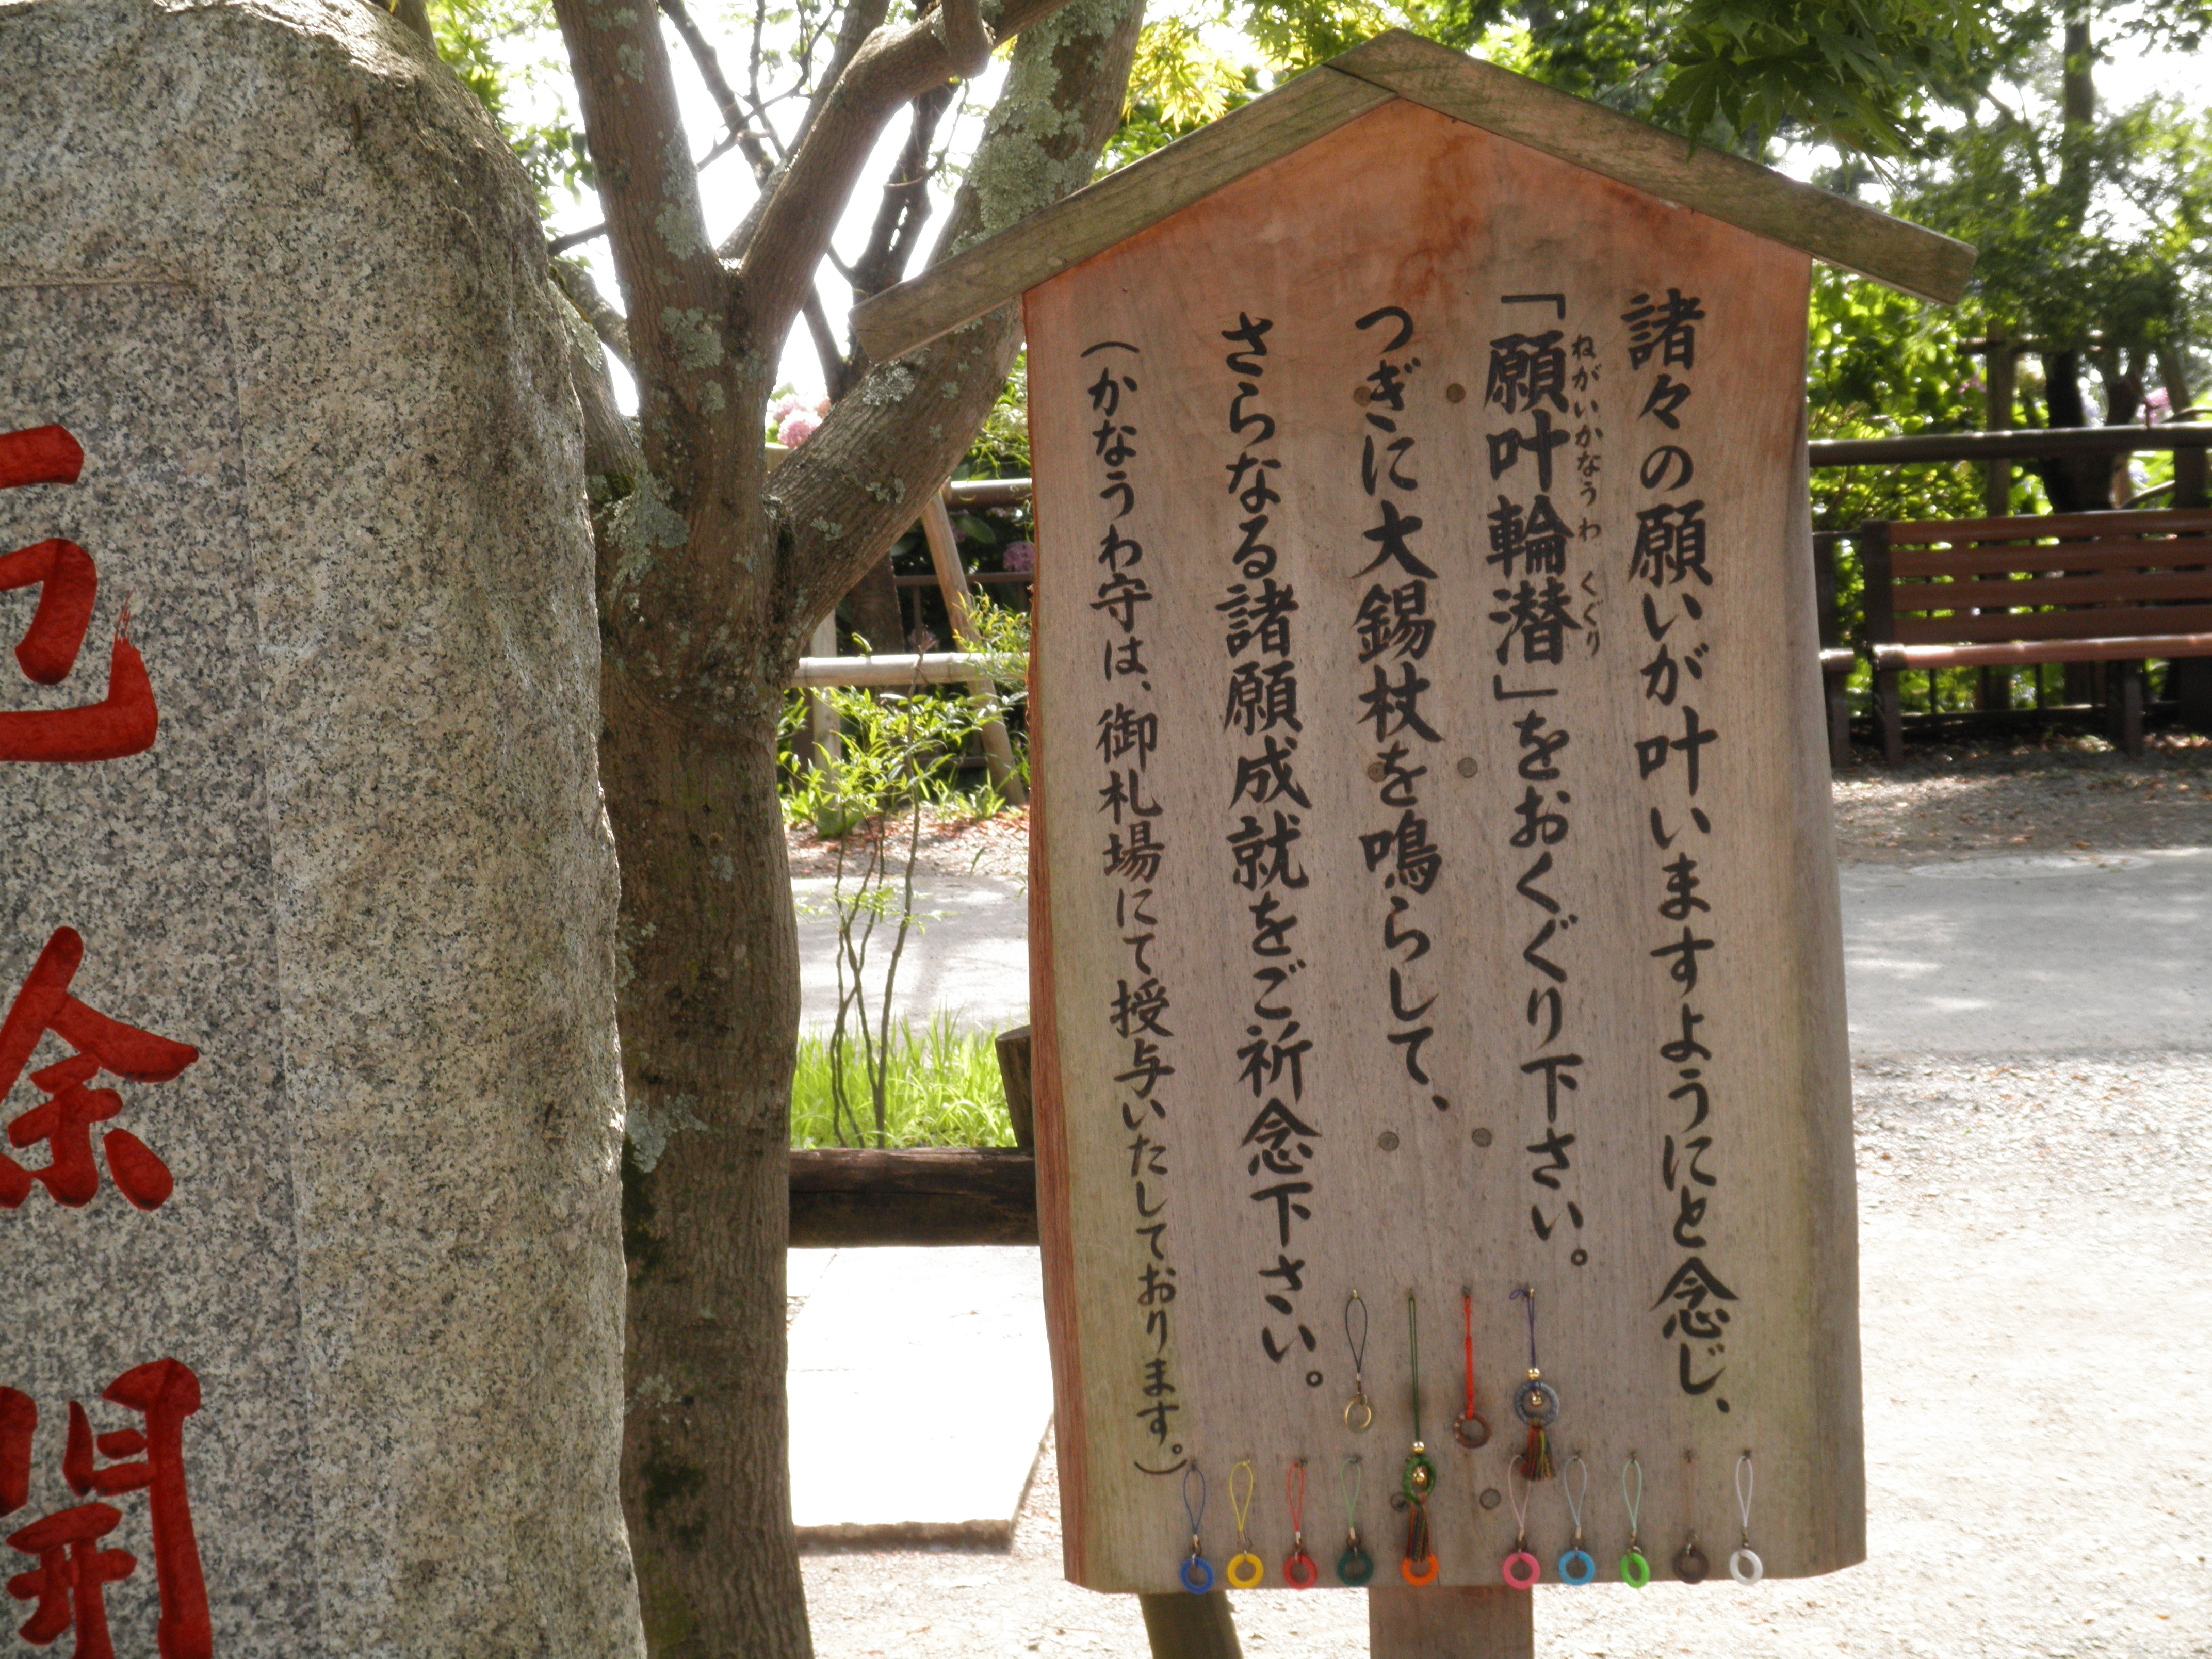 諸々の願いが叶いますようにと念じ、
「願叶輪潜」をおくぐり下さい。
ねがいかなうわくぐり
つぎに大錫杖を鳴らして、
さらなる諸願成就をご祈念下さい。
(かなうわ守は、御札場にて授与いたしております。)
厄除開